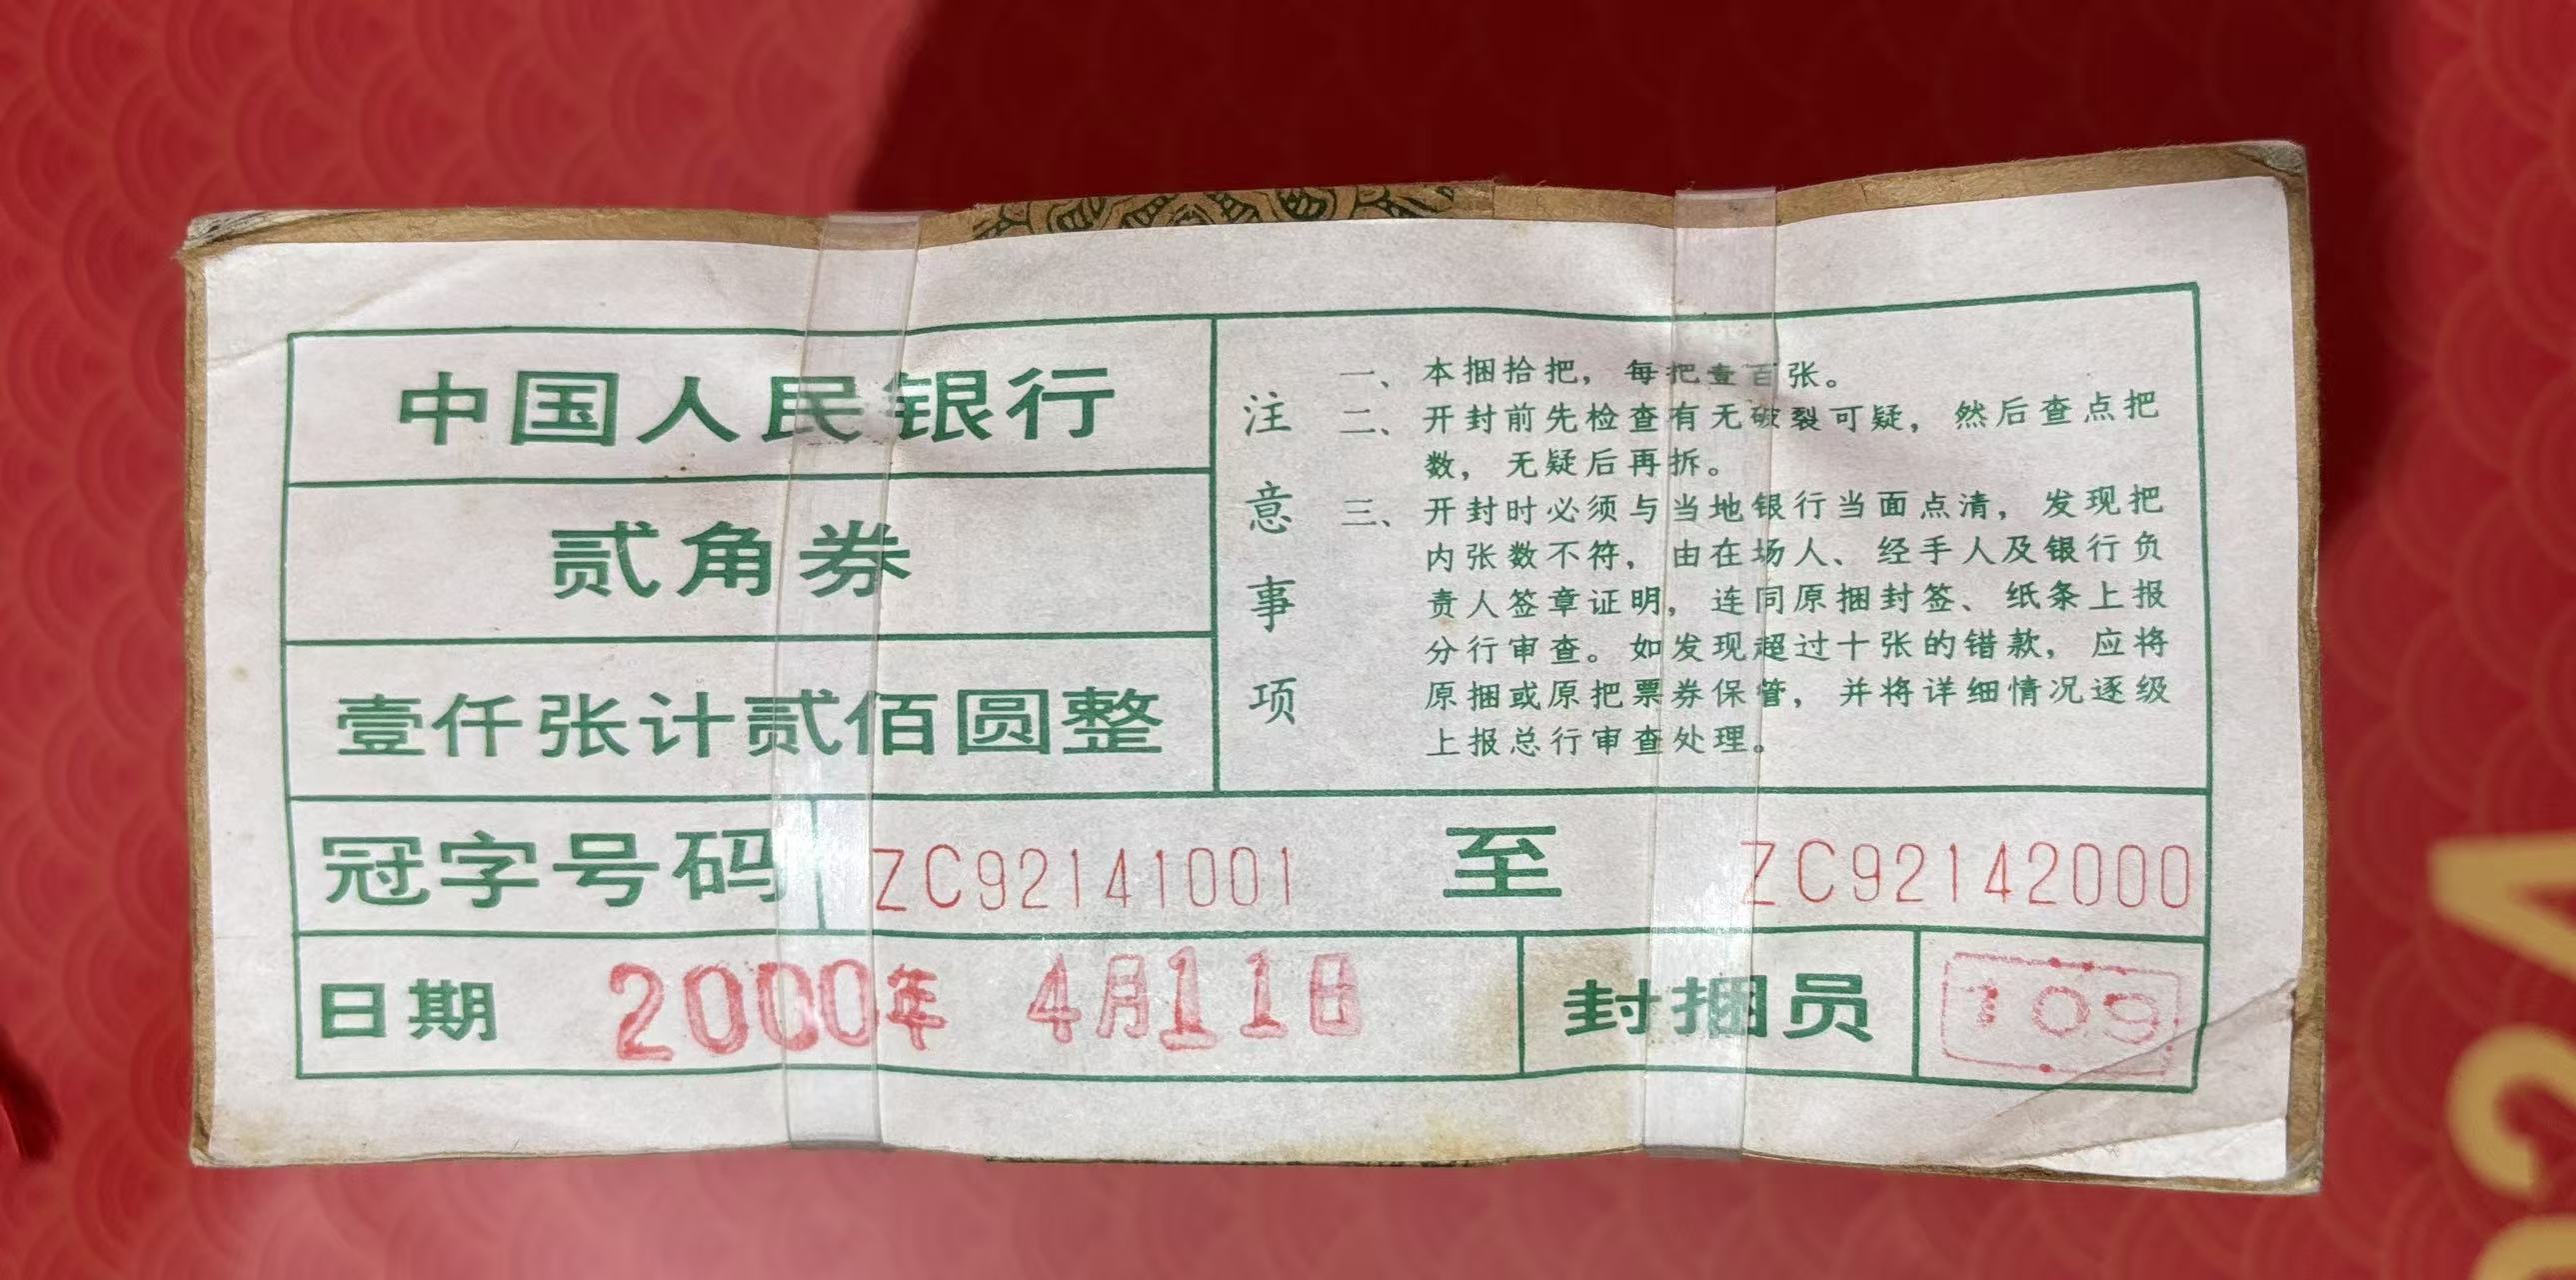 中国人民银行
贰角券
壹仟张计贰佰圆整
注意事项
一、本捆拾把，每把壹百张。
二、开封前先检查有无破裂可疑，然后查点把
数，无疑后再拆。
三、开封时必须与当地银行当面点清，发现把
内张数不符，由在场人、经手人及银行负
责人签章证明，连同原捆封签、纸条上报
分行审查。如发现超过十张的错款，应将
原捆或原把票券保管，并将详细情况逐级
上报总行审查处理。
冠字号码 ZC92141001 至 ZC92142000
日期 2000年 4月11日 封捆员 109